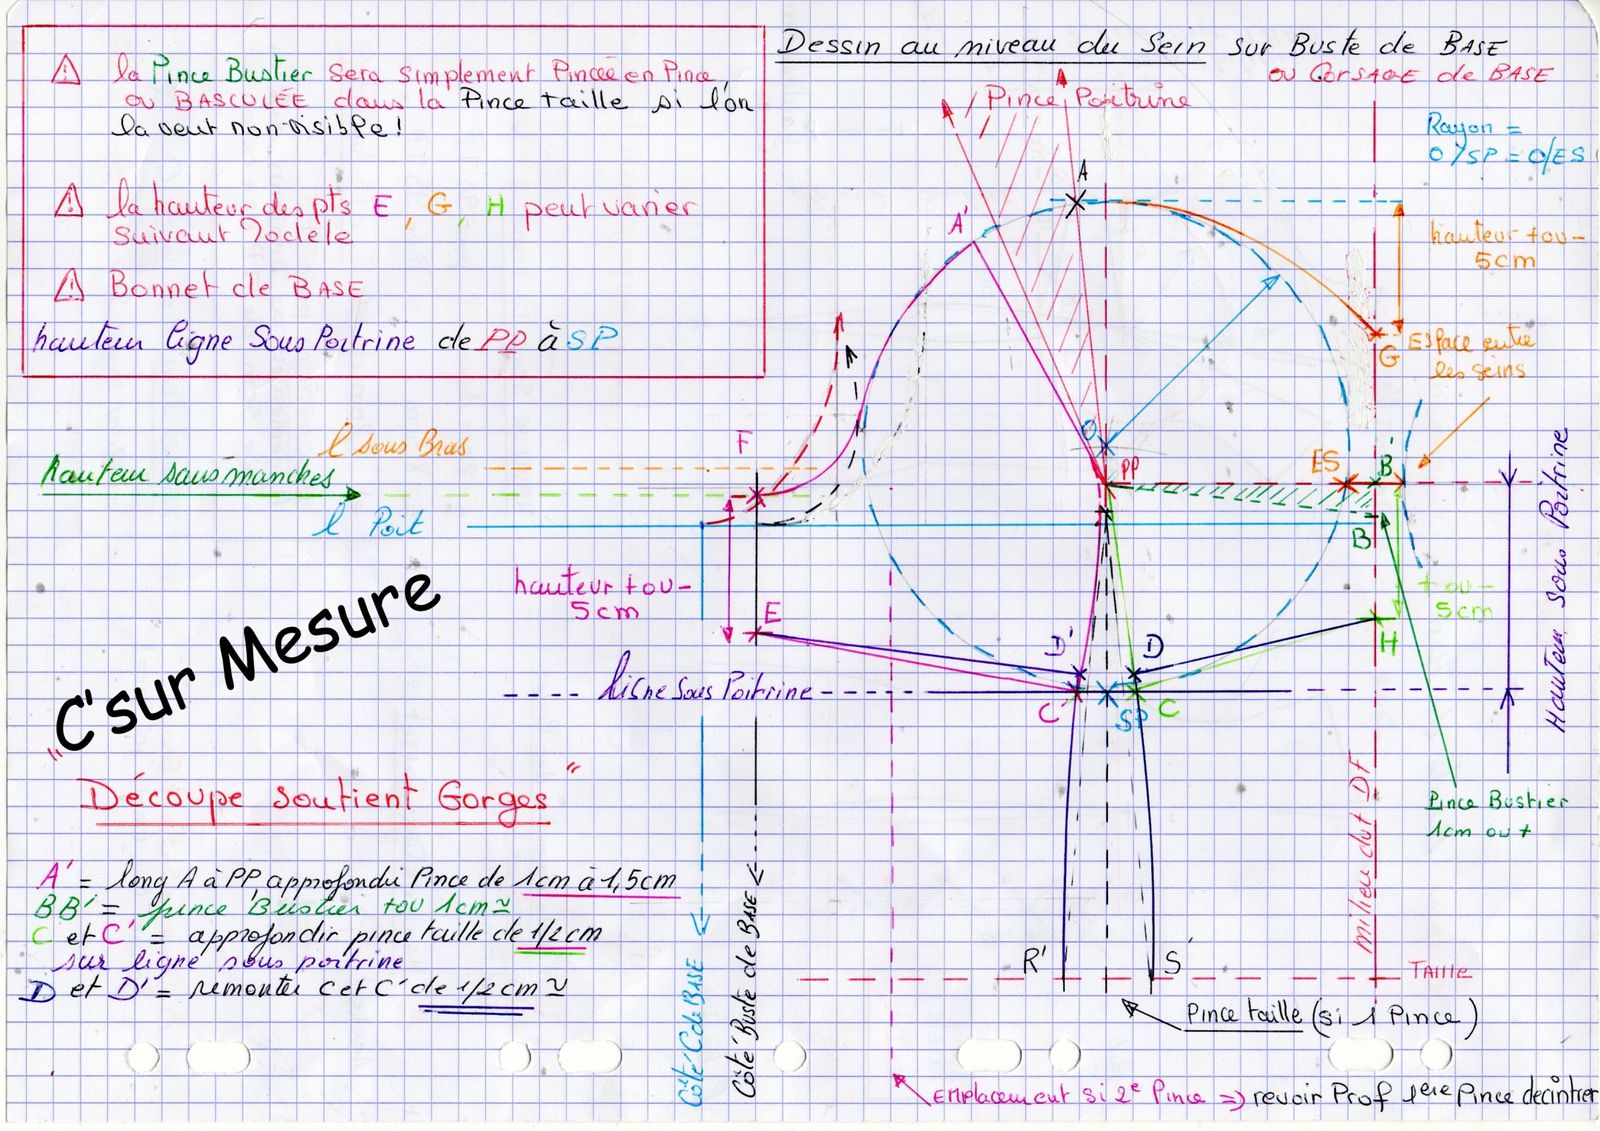 ⚠ la Pince Bustier sera simplement Pincée en Pince,
ou BASCULÉE dans la Pince taille si l'on
la veut non visible !
⚠ la hauteur des pts E, G, H peut varier
suivant Modèle
⚠ Bonnet de BASE
hauteur ligne Sous Poitrine de PP à SP
Dessin au niveau du Sein sur Buste de BASE
ou CORSAGE de BASE
Pince Poitrine
Rayon =
O/SP = O/ES
A
A'
hauteur + ou -
5cm
G
Espace entre
les seins
F
l sous Bras
hauteur sans manches
l Poit
O
PP
ES
B'
B
hauteur + ou -
5cm
+ ou -
5cm
E
D'
D
H
ligne Sous Poitrine
C'
SP
C
Hauteur Sous Poitrine
"C'sur Mesure
Découpe soutient Gorges"
Pince Bustier
1cm ou +
milieu dvt DF
A' = long A à PP, approfondir Pince de 1cm à 1,5cm
BB' = pince Bustier + ou 1cm ≃
C et C' = approfondir pince taille de 1/2 cm
sur ligne sous poitrine
D et D' = remonter C et C' de 1/2 cm ≃
Côté C de BASE
Côté Buste de BASE
R'
S'
TAILLE
Pince taille (si 1 Pince)
Emplacement si 2e Pince => revoir Prof 1ere Pince decintrer